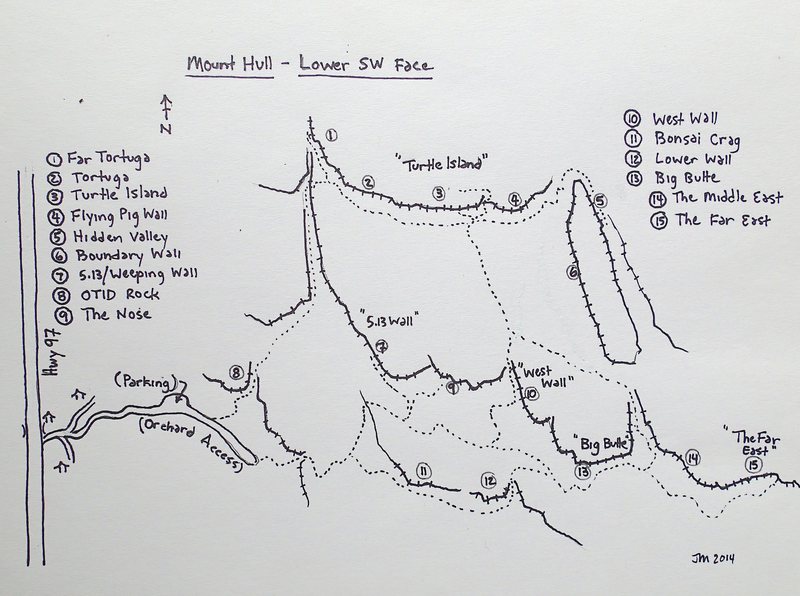 Mount Hull - Lower SW Face
N
① Far Tortuga
② Tortuga
③ Turtle Island
④ Flying Pig Wall
⑤ Hidden Valley
⑥ Boundary Wall
⑦ 5.13/Weeping Wall
⑧ OTID Rock
⑨ The Nose
⑩ West Wall
⑪ Bonsai Crag
⑫ Lower Wall
⑬ Big Butte
⑭ The Middle East
⑮ The Far East
①
"Turtle Island"
②
③
④
⑤
⑥
"5.13 Wall"
⑦
Hwy 97
(Parking)
⑧
⑨
"West
Wall"
⑩
(Orchard Access)
"Big Butte"
"The Far
East"
⑪
⑫
⑬
⑭
⑮
JM 2014